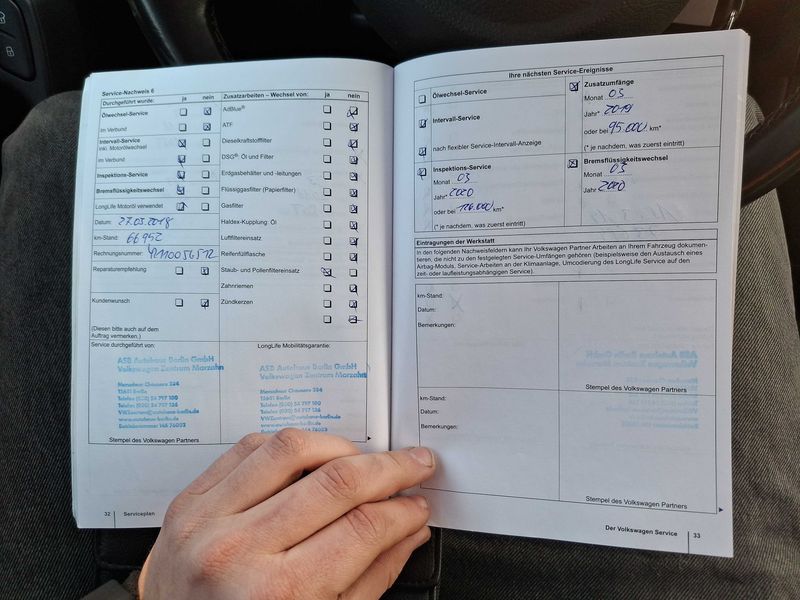 Service-Nachweis 6
Durchgeführt wurde: ja nein
Ölwechsel-Service
im Verbund
Intervall-Service
inkl. Motorölwechsel
im Verbund
Inspektions-Service
Bremsflüssigkeitswechsel
LongLife Motoröl verwendet
Datum: 27.03.2018
km-Stand: 66952
Rechnungsnummer:
Reparaturempfehlung
Kundenwunsch
(Diesen bitte auch auf dem
Auftrag vermerken.)
Service durchgeführt von:
ASB Autohaus Berlin GmbH
Volkswagen Zentrum Marzahn
12681 Berlin
Telefon (030) 54 797 100
Telefax (030) 54 797 126
www.autohaus-berlin.de
Stempel des Volkswagen Partners
Zusatzarbeiten – Wechsel von: ja nein
AdBlue®
ATF
Dieselkraftstofffilter
DSG®: Öl und Filter
Erdgasbehälter und -leitungen
Flüssiggasfilter (Papierfilter)
Gasfilter
Haldex-Kupplung: Öl
Luftfiltereinsatz
Reifenfüllflasche
Staub- und Pollenfiltereinsatz
Zahnriemen
Zündkerzen
LongLife Mobilitätsgarantie:
ASB Autohaus Berlin GmbH
Volkswagen Zentrum Marzahn
12681 Berlin
www.autohaus-berlin.de
32 Serviceplan
Ihre nächsten Service-Ereignisse
Ölwechsel-Service
Intervall-Service
nach flexibler Service-Intervall-Anzeige
Inspektions-Service
Monat 03
Jahr* 2020
oder bei 126.000 km*
(* je nachdem, was zuerst eintritt)
Zusatzumfänge
Monat 03
Jahr* 2019
oder bei 95.000 km*
(* je nachdem, was zuerst eintritt)
Bremsflüssigkeitswechsel
Monat 03
Jahr 2020
Eintragungen der Werkstatt
In den folgenden Nachweisfeldern kann Ihr Volkswagen Partner Arbeiten an Ihrem Fahrzeug dokumen-
tieren, die nicht zu den festgelegten Service-Umfängen gehören (beispielsweise den Austausch eines
Airbag-Moduls, Service-Arbeiten an der Klimaanlage, Umcodierung des LongLife Service auf den
zeit- oder laufleistungsabhängigen Service).
km-Stand:
Datum:
Bemerkungen:
Stempel des Volkswagen Partners
km-Stand:
Datum:
Bemerkungen:
Stempel des Volkswagen Partners
Der Volkswagen Service 33